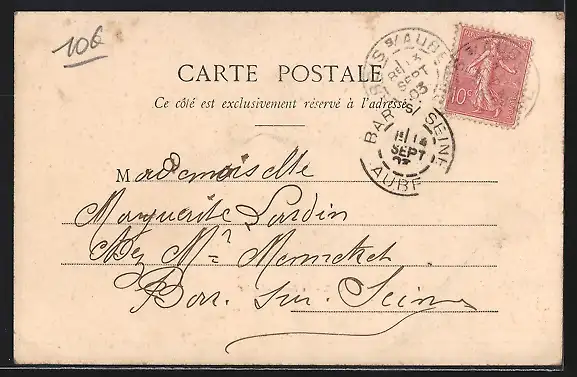 10€
CARTE POSTALE
Ce côté est exclusivement réservé à l'adresse
BAR S/ SEINE
14
SEPT
03
AUBE
S/ AUBE
14
SEPT
03
10c
Mademoiselle
Marguerite Lardin
chez Mr
Bar. sur. Seine